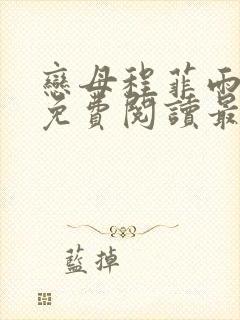 戀母程菲雨
免費閱讀最
藍掉